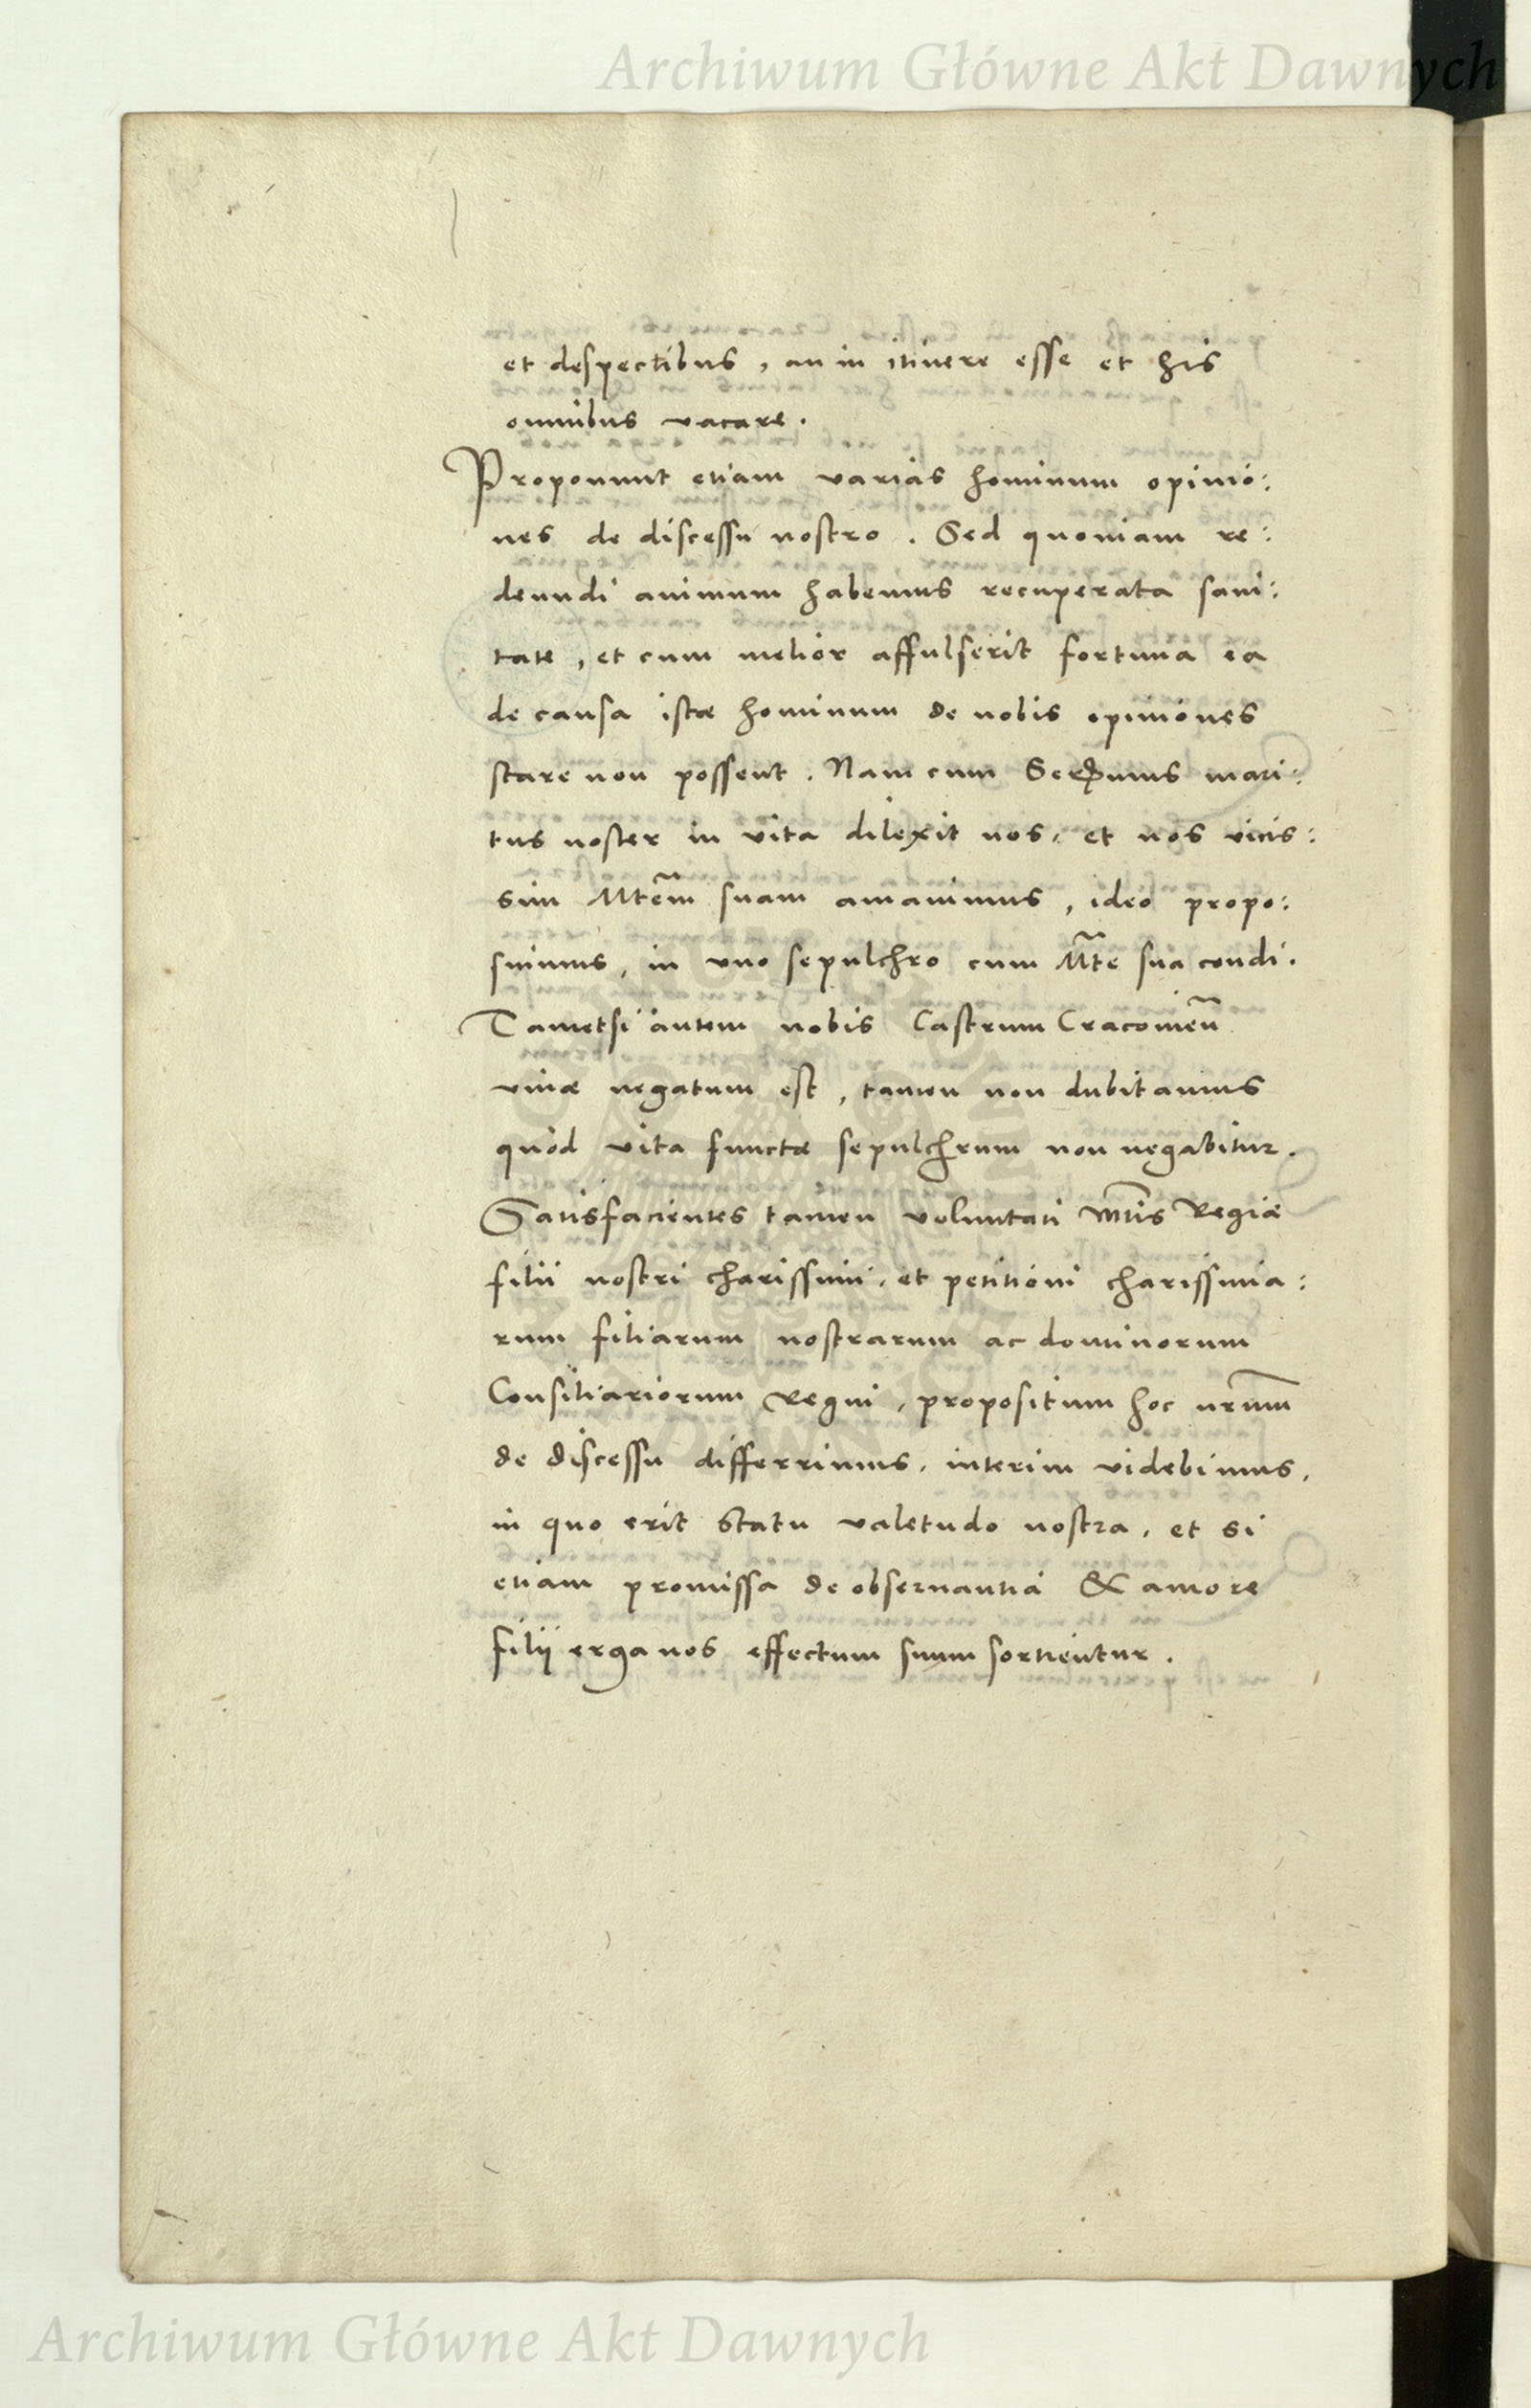 Archiwum Główne Akt Dawnych
et despectibus, an in itinere esse et his
omnibus vacare.
Proponunt etiam varias hominum opinio:
nes de discessu nostro. Sed quoniam re:
deundi animum habemus recuperata sani:
tate, et cum melior affulserit fortuna ea
de causa istæ hominum de nobis opiniones
stare non possent. Nam cum mari:
tus noster in vita dilexit nos, et nos vicis:
sim Mtem̃ suam amavimus, ideo propo:
suimus, in uno sepulchro cum Mt̃e sua condi.
Tametsi autem nobis Castrum Cracovień
vivæ negatum est, tamen non dubitamus
quod vita functæ sepulchrum non negabitur.
Satisfacientes tamen voluntati Mt̃is Regiæ
filii nostri charissimi, et petitioni charissima:
rum filiarum nostrarum ac dominorum
Consiliariorum Regni, propositum hoc nr̃um
de discessu differrimus, interim videbimus,
in quo erit statu valetudo nostra, et si
etiam promissa de observantia & amore
filij erga nos effectum suum sortientur.
Archiwum Główne Akt Dawnych